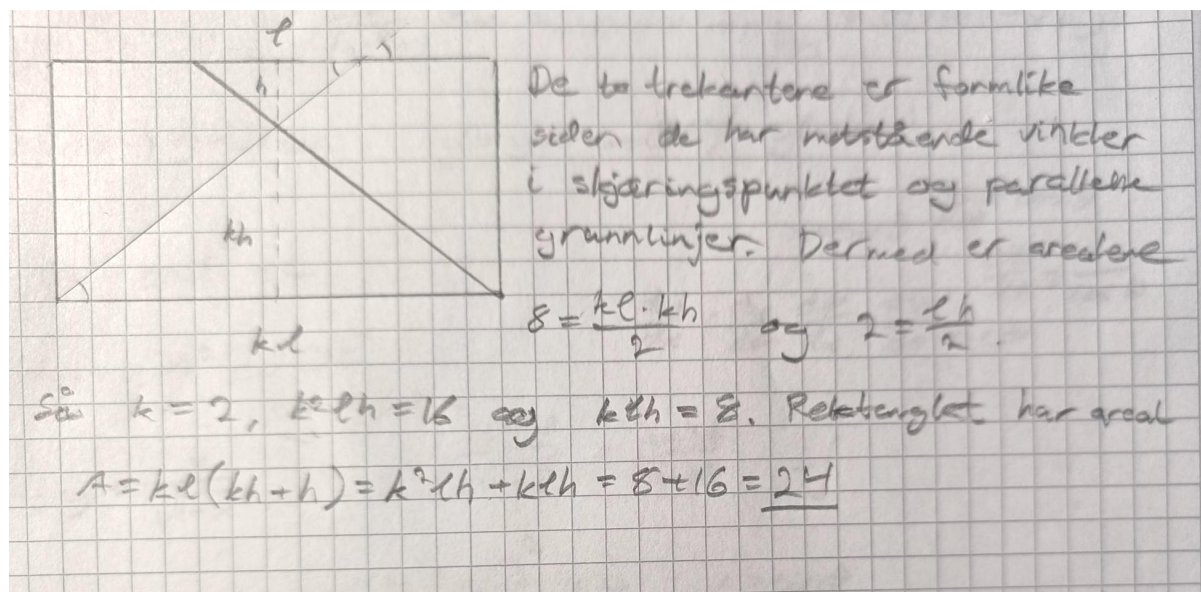 l
h
De to trekantene er formlike
siden de har motstående vinkler
i skjæringspunktet og parallelle
kh
grunnlinjer. Dermed er arealene
8 = kl·kh/2 og 2 = lh/2.
kl
Så k = 2, k²lh = 16 og klh = 8. Rektanglet har areal
A = kl(kh+h) = k²lh + klh = 8+16 = 24